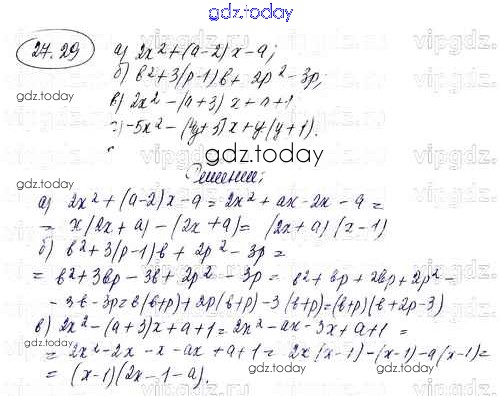 gdz.today
27.29 а) 2x²+(a-2)x-a;
б) b²+3(p-1)b+2p²-3p;
gdz.today
в) 2x²-(a+3)x+a+1
г) -5x²-(4y+3)x+y(y+1).
gdz.today
Решение:
а) 2x²+(a-2)x-a = 2x²+ax-2x-a =
= x(2x+a)-(2x+a) = (2x+a)(x-1)
б) b²+3(p-1)b+2p²-3p =
= b²+3bp-3b+2p²-3p = b²+bp+2bp+2p²-
-3b-3p = b(b+p)+2p(b+p)-3(b+p) = (b+p)(b+2p-3)
в) 2x²-(a+3)x+a+1 = 2x²-ax-3x+a+1 =
= 2x²-2x-x-ax+a+1 = 2x(x-1)-(x-1)-a(x-1) =
= (x-1)(2x-1-a).
gdz.today
gdz.today